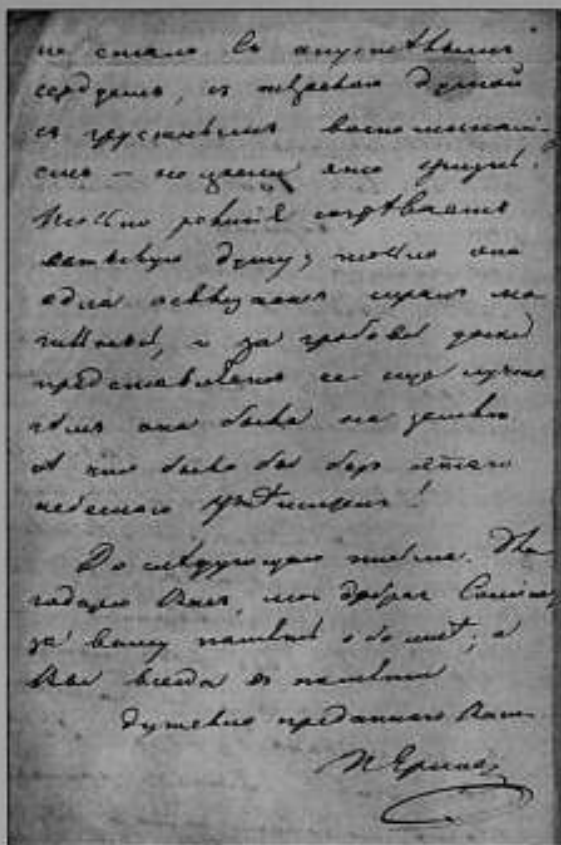 не стало въ опустѣвшемъ
сердцѣ, съ мрачною думой
съ грустнымъ воспоминані
емъ — не
Только согрѣваетъ
душу; только она
одна освѣщаетъ мракъ мо
гильный, и за гробовой доской
представляетъ ее еще лучше
чѣмъ она была на землѣ.
А что было бы безъ этого
небеснаго утѣшенія!
До слѣдующаго письма. Бла
годарю Васъ, моя добрая
за вашу память обо мнѣ; а
Вы всегда въ памяти
душевно преданнаго Вамъ
П. Ершова